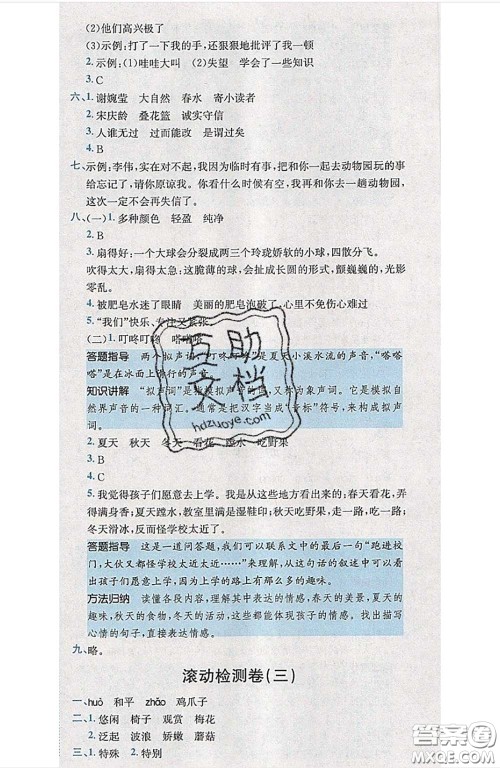 (2)他们高兴极了
(3)示例:打了一下我的手,还狠狠地批评了我一顿
2. 示例:(1)哇哇大叫 (2)失望 学会了一些知识
3. C
六、1. 谢婉莹 大自然 春水 寄小读者
2. 宋庆龄 叠花篮 诚实守信
3. 人谁无过 过而能改 是谓过矣
4. B
七、示例:李伟,实在对不起,我因为临时有事,把和你一起去动物园玩的事
给忘记了,请你原谅我。你看什么时候有空,我再和你去一趟动物园,
这次一定不会再失信了。
八、(一)1. 多种颜色 轻盈 纯净
2. B
3. 扇得好:一个大球会分裂成两三个玲珑娇软的小球,四散分飞。
吹得太大,扇得太急:这脆薄的球,会扯成长圆的形式,颤巍巍的,光影
零乱。
4. 被肥皂水迷了眼睛 美丽的肥皂泡破了,心里不免伤心
5. “我们”快乐、专注又紧张。
(二)1. 叮咚叮咚 嗒嗒嗒
答题指导 两个拟声词,“叮咚叮咚”是夏天小溪流水的声音,“嗒嗒
嗒”是在冰面上滑行的声音。
知识讲解 “拟声词”是模拟声音的词,又称为象声词。它是模拟自
然界声音的一种词汇。通常是把汉字当成“音标”符号,来构成拟声
词。
2. 夏天 秋天 冬天 看花 蹚水 吃野果
3. B
4. C
5. 我觉得孩子们愿意去上学。我从这些地方看出来的:春天看花,弄
得满身香;夏天蹚水,教室里满是湿鞋印;秋天吃野果,走一路,吃一路;
冬天滑冰,大伏又都怪学校太近了。
答题指导 这是一道问答题,我们可以联系文中的最后一句“跑进校
门,大伙又都怪学校太近太近……”来理解,从这句话的叙述中可以看
出孩子们愿意上学,因为上学的路上有那么多的趣味。
方法归纳 读懂各段内容,理解其中表达的情感,春天的美景,夏天的
趣味,秋天的食物,冬天的活动,这些都能体现孩子的情感。找出描写
心情的句子,直接表达情感。
九、略。
滚动检测卷(三)
一、huò 和平 zhǎo 鸡爪子
二、1. 悠闲 椅子 观赏 梅花
2. 泛起 波浪 娇嫩 蘑菇
三、1. 特殊 2. 特别
互助文档
hdzuoye.com
答案圈
MXQE.COM